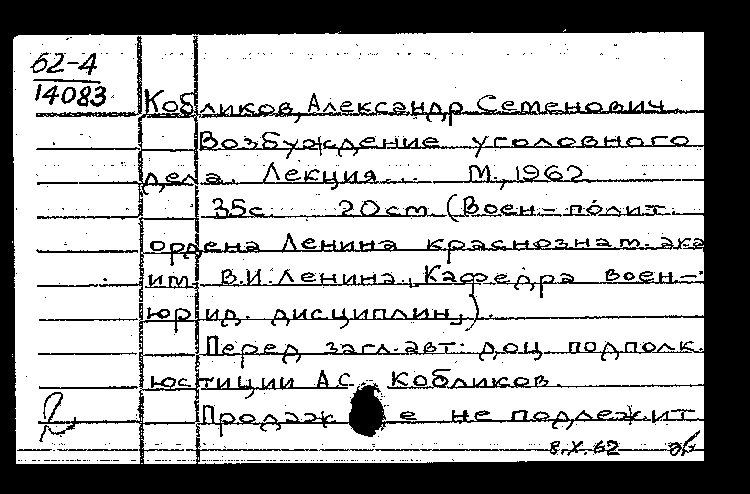 62-4
14083
Кобликов, Александр Семенович.
Возбуждение уголовного
дела. Лекция... М., 1962
35с. 20см. (Воен-полит.
ордена Ленина краснознам. ака
им. В.И. Ленина. Кафедра воен-
юрид. дисциплин).
Перед загл. авт: доц. подполк.
юстиции А.С. Кобликов.
Продаж е не подлежит
8.X.62